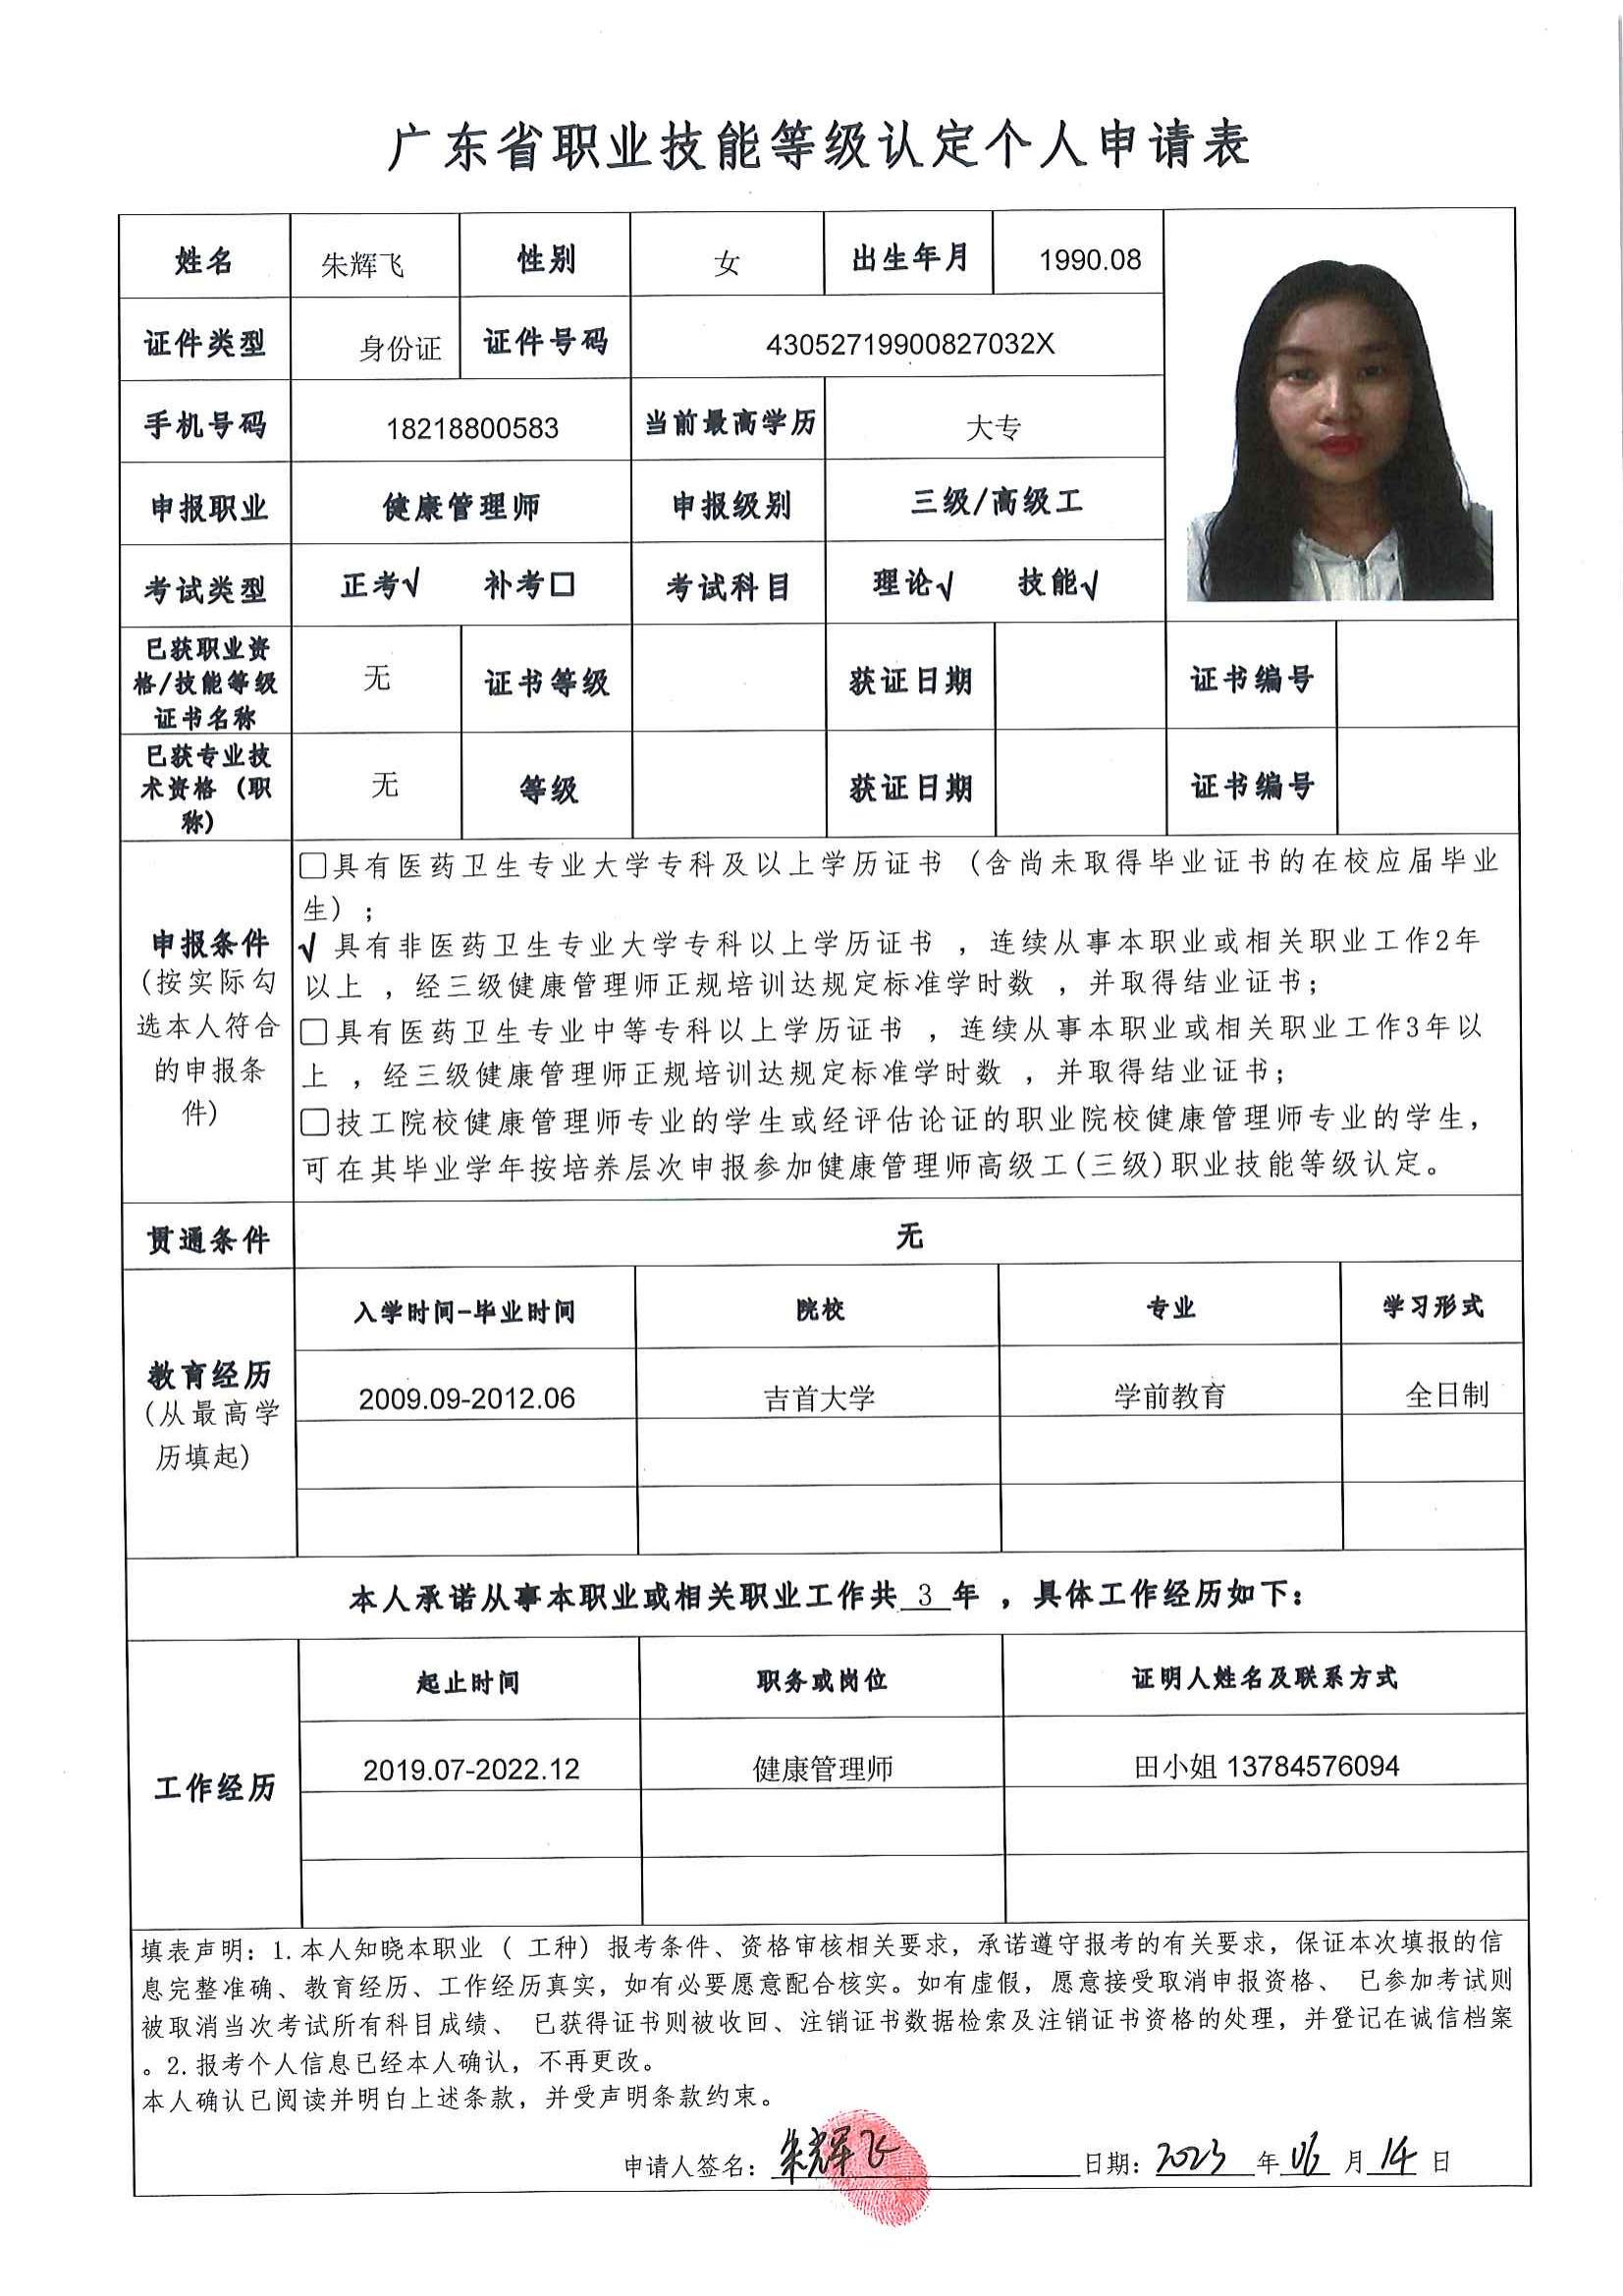 广东省职业技能等级认定个人申请表
姓名 朱辉飞 性别 女 出生年月 1990.08
证件类型 身份证 证件号码 43052719900827032X
手机号码 18218800583 当前最高学历 大专
申报职业 健康管理师 申报级别 三级/高级工
考试类型 正考√ 补考□ 考试科目 理论√ 技能√
已获职业资
格/技能等级
证书名称
无 证书等级 获证日期 证书编号
已获专业技
术资格（职
称）
无 等级 获证日期 证书编号
申报条件
(按实际勾
选本人符合
的申报条
件)
□具有医药卫生专业大学专科及以上学历证书（含尚未取得毕业证书的在校应届毕业
生）；
√ 具有非医药卫生专业大学专科以上学历证书 ，连续从事本职业或相关职业工作2年
以上 ，经三级健康管理师正规培训达规定标准学时数 ，并取得结业证书；
□具有医药卫生专业中等专科以上学历证书 ，连续从事本职业或相关职业工作3年以
上 ，经三级健康管理师正规培训达规定标准学时数 ，并取得结业证书；
□技工院校健康管理师专业的学生或经评估论证的职业院校健康管理师专业的学生，
可在其毕业学年按培养层次申报参加健康管理师高级工(三级)职业技能等级认定。
贯通条件 无
教育经历
(从最高学
历填起)
入学时间-毕业时间 院校 专业 学习形式
2009.09-2012.06 吉首大学 学前教育 全日制
本人承诺从事本职业或相关职业工作共 3 年 ，具体工作经历如下：
工作经历
起止时间 职务或岗位 证明人姓名及联系方式
2019.07-2022.12 健康管理师 田小姐 13784576094
填表声明：1.本人知晓本职业（ 工种）报考条件、资格审核相关要求，承诺遵守报考的有关要求，保证本次填报的信
息完整准确、教育经历、工作经历真实，如有必要愿意配合核实。如有虚假，愿意接受取消申报资格、 已参加考试则
被取消当次考试所有科目成绩、 已获得证书则被收回、注销证书数据检索及注销证书资格的处理，并登记在诚信档案
。2.报考个人信息已经本人确认，不再更改。
本人确认已阅读并明白上述条款，并受声明条款约束。
申请人签名：朱辉飞 日期：2023 年 06 月 14 日